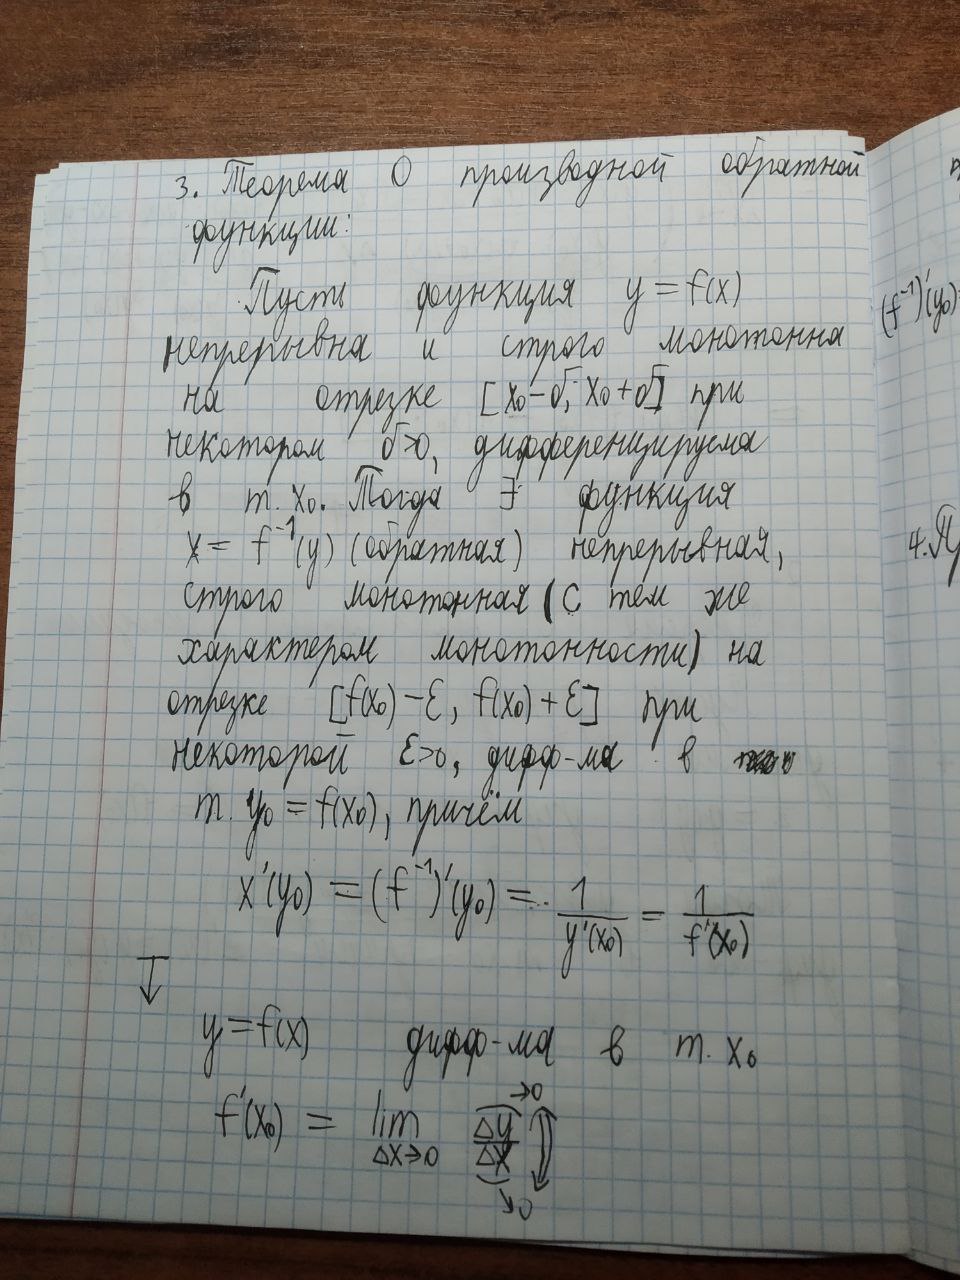 3. Теорема О производной обратной
функции:
Пусть функция y = f(x)
непрерывна и строго монотонна
на отрезке [x₀-δ; x₀+δ] при
некотором δ>0, дифференцируема
в т. x₀. Тогда ∃ функция
x = f⁻¹(y) (обратная) непрерывная,
строго монотонная (с тем же
характером монотонности) на
отрезке [f(x₀)-ε, f(x₀)+ε] при
некоторой ε>0, дифф-ма в
т. y₀ = f(x₀), причём
x'(y₀) = (f⁻¹)'(y₀) = 1/y'(x₀) = 1/f'(x₀)
y=f(x) дифф-ма в т. x₀
f'(x₀) = lim Δx→0 Δy/Δx
→0
→0
(f⁻¹)'(y₀)
4.